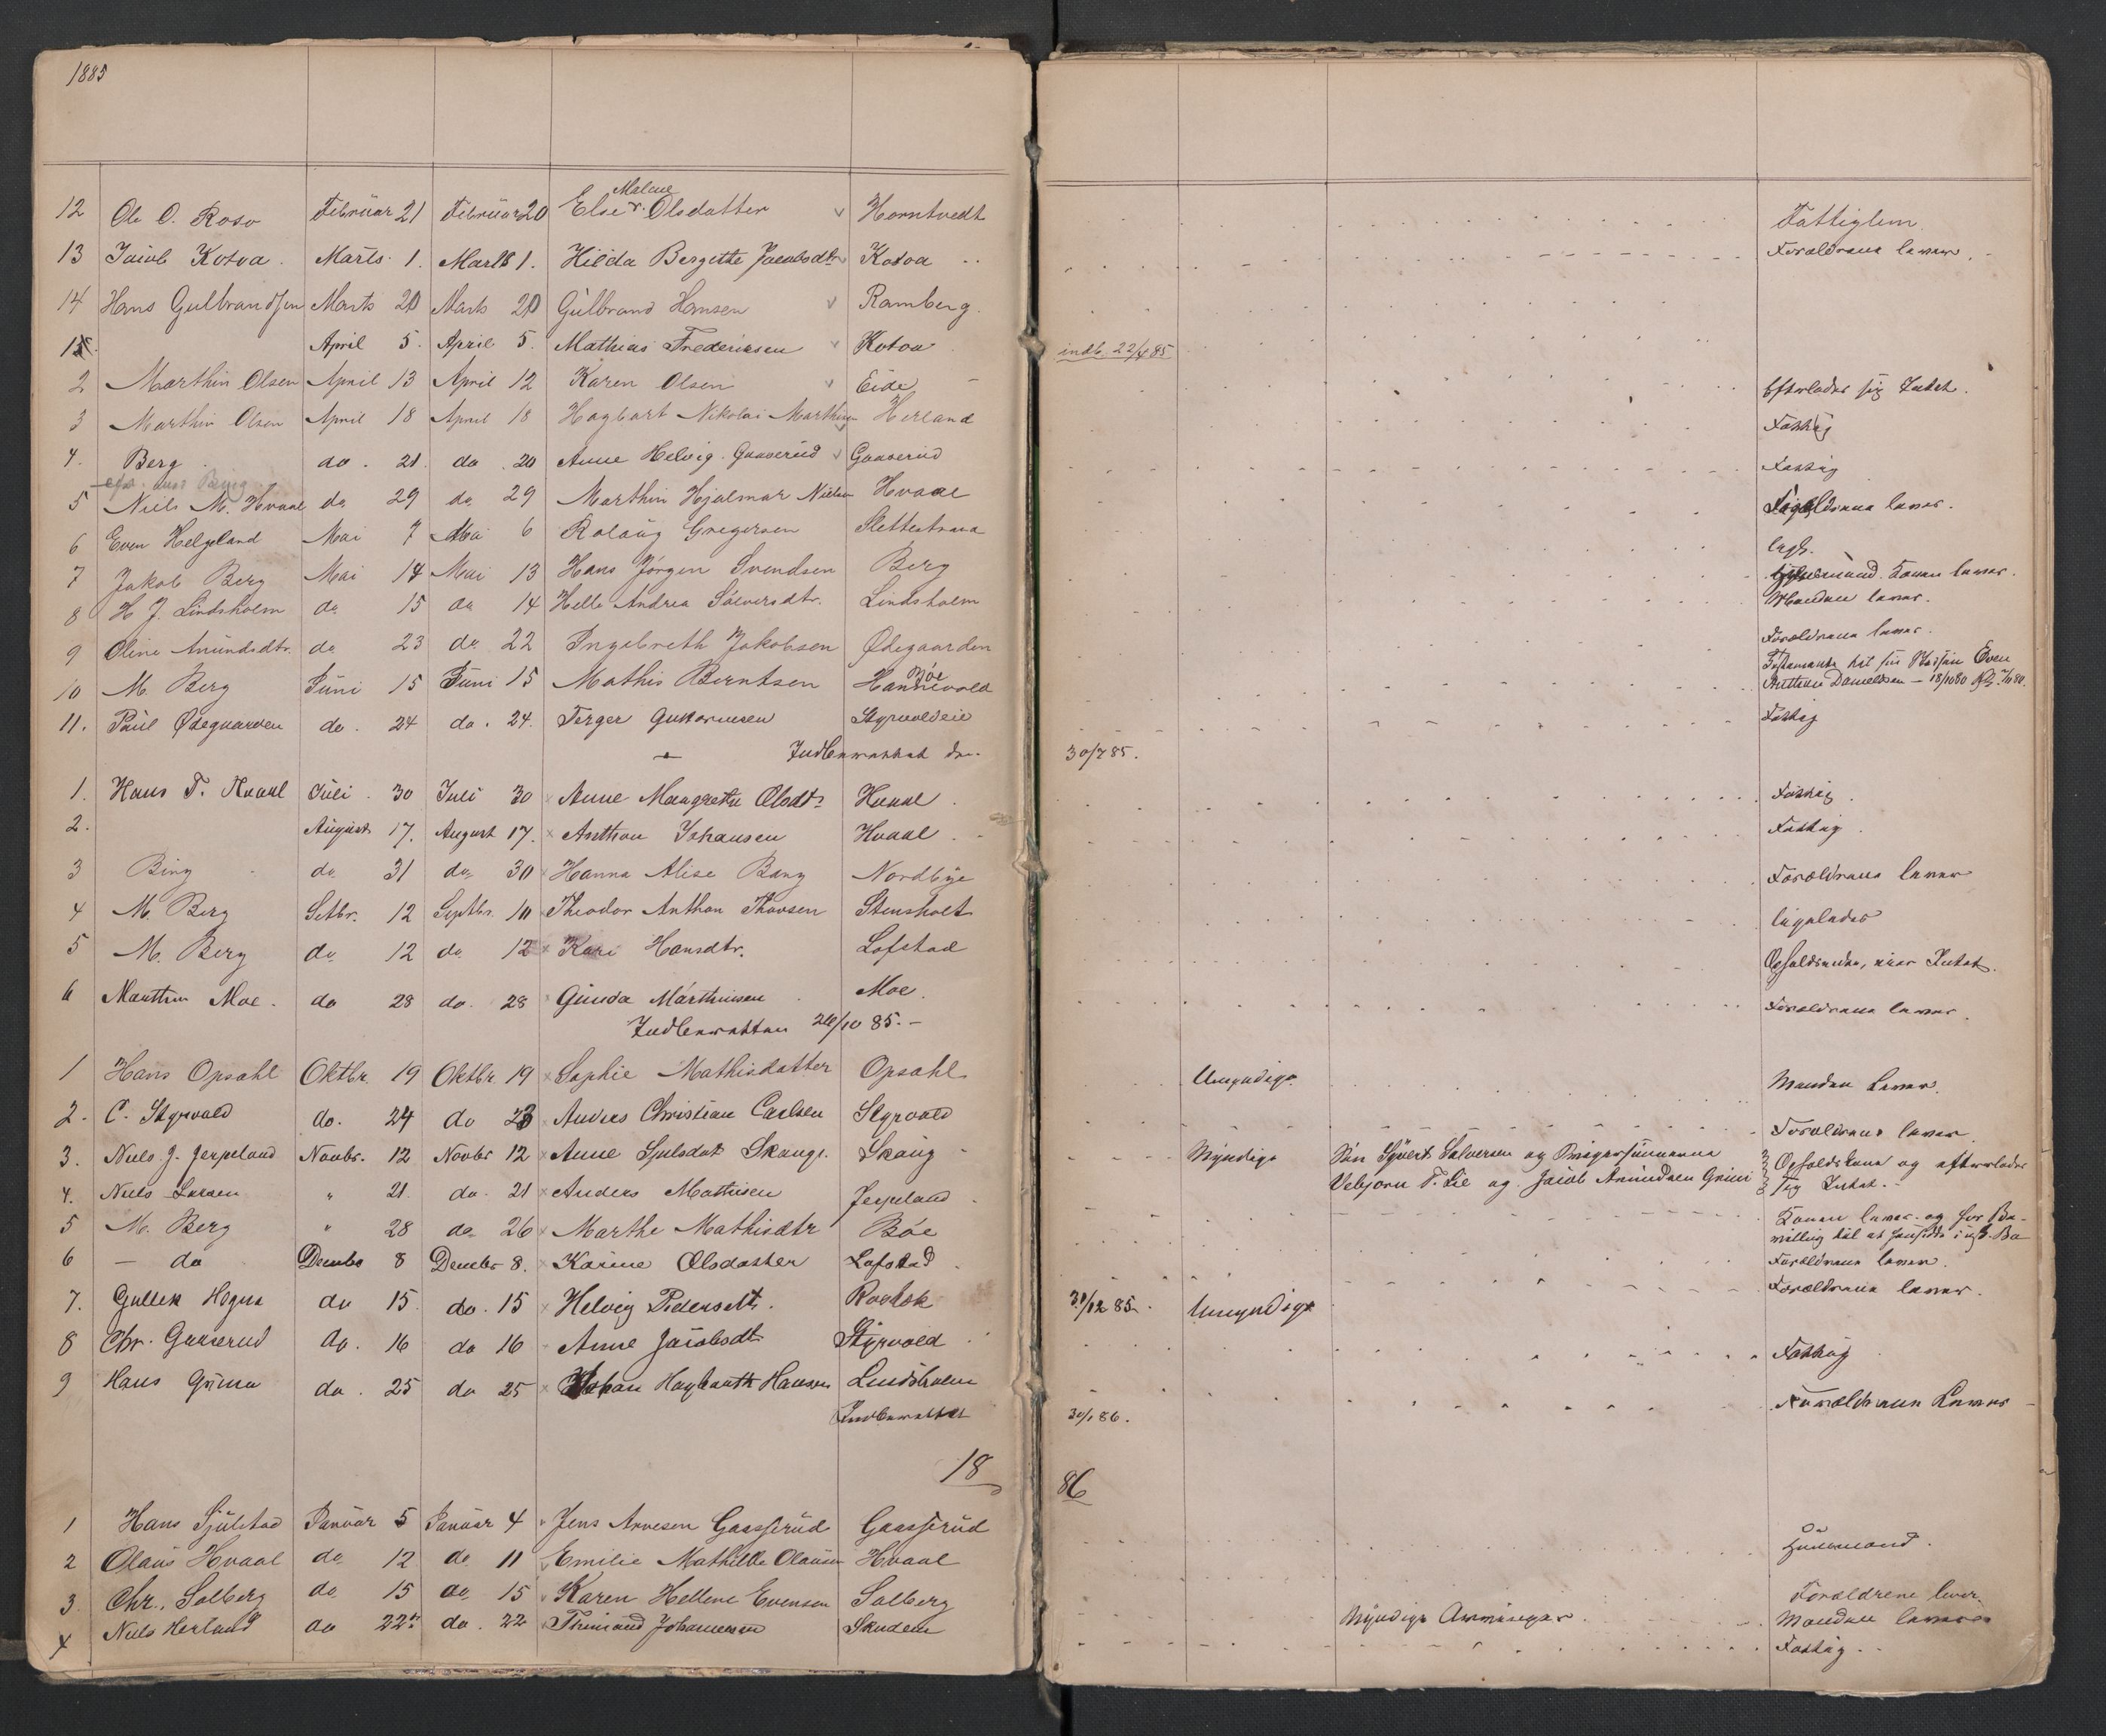 1885
12 Ole O. Roso Februar 21 Februar 20 Else Malene Olsdatter Horntvedt Fattiglem
13 Jacob Kotoa Marts 1. Marts 1. Hilda Bergitte Jacobsdtr Kotoa Forældrene lever.
14 Hans Gulbrandsen Marts 20 Marts 20 Gulbrand Hansen Ramberg.
15. April 5. April 5. Mathias Frederiksen Kotoa indb. 22/4 85
2 Marthin Olsen April 13 April 12 Karen Olsen Eide Efterlader sig Intet.
3 Marthin Olsen April 18 April 18 Hagbart Nikolai Marthin Herland Fattig
4. Berg do. 21 do. 20 Anne Helvig Gaaserud Gaaserud Fattig
5 Niels M. Hvaal do 29 do 29 Marthin Hjalmar Nielsen Hvaal Forældrene lever.
6 Even Helgeland Mai 7 Mai 6 Rolaug Gregersen Slettestraa
7 Jakob Berg Mai 14 Mai 13 Hans Jørgen Svendsen Berg Konen lever.
8 H. J. Lindsholm do 15 do 14 Helle Andrea Sølversdtr. Lindsholm Manden lever.
9 Oline Amundsdtr. do 23 do 22 Ingebreth Jakobsen Ødegaarden Forældrene lever.
10 M. Berg Juni 15 Juni 15 Mathis Berntsen Bøe Hannevold Testamente til sin Even
Danielsen – 18/10 80
11. Paul Ødegaarden do. 24 do. 24. Terger Guttormsen Styrvoldeie Fattig
Indberettet den 30/7 85.
1. Hans T. Hvaal Juli 30 Juli 30 Anne Margrethe Olsdtr Hvaal Fattig.
2. August 17. August 17. Anthon Johansen Hvaal Fattig.
3 Bing do 31 do 30 Hanna Alise Bang Nordbye Forældrene lever
4 M. Berg Setbr. 12 Septbr. 10 Theodor Anthon Thorsen Stensholt ligeledes
5 M. Berg do 12 do 12 Kari Hansdtr. Lofstad Opholdskone, eier Intet.
6 Marthin Moe. do 28 do. 28 Gunda Marthinsen Moe. Forældrene lever.
Indberettet 26/10 85.–
1 Hans Opsahl Oktbr. 19 Oktbr. 19 Sophie Mathisdatter Opsahl Umyndige Manden Lever.
2. C. Styrvold do. 24 do 23 Anders Christian Carlsen Styrvold Forældrene lever
3. Niels J. Jerpeland Novbr. 12 Novbr 12 Anne Skauge. Skaug Myndige Søn Syvert Salvesen og Svigersønnerne Opholdskone og efterlader
Vebjørn T. Lie og Jacob Amundsen Grini sig Intet.–
4. Niels Larsen " 21. do. 21 Anders Mathisen Jerpeland
5 M. Berg " 28 do 26 Marthe Mathisdtr Bøe Konen lever og har Be-
villing til at
6 – do Decmbr 8 Decmbr 8. Karine Olsdatter Lofstad Forældrene lever.
7. Gullik Hogna do 15 do. 15 Helvig Pedersdt. Rorholt 31/12 85. Umyndige Forældrene lever.
8 Chr. Gaaserud do. 16 do 16 Anne Jacobsdt Styrvold Fattig
9 Hans Grima do. 25 do 25 Johan Hagbarth Hansen Lindsholm Forældrene Lever
Indberettet 30/1 86.
18 86
1 Hans Sjulstad Januar 5 Januar 4 Jens Arvesen Gaasserud Gaasserud Huusmand.
2 Olaus Hvaal do 12 do 11 Emilie Mathilde Olausen Hvaal
3. Chr. Solberg do 15 do 15 Karen Hellene Evensen Solberg Forældrene lever.
4 Niels Herland do 22 do. 22 Johannesen Skudem Myndige Arvinger Manden lever
Fattig.